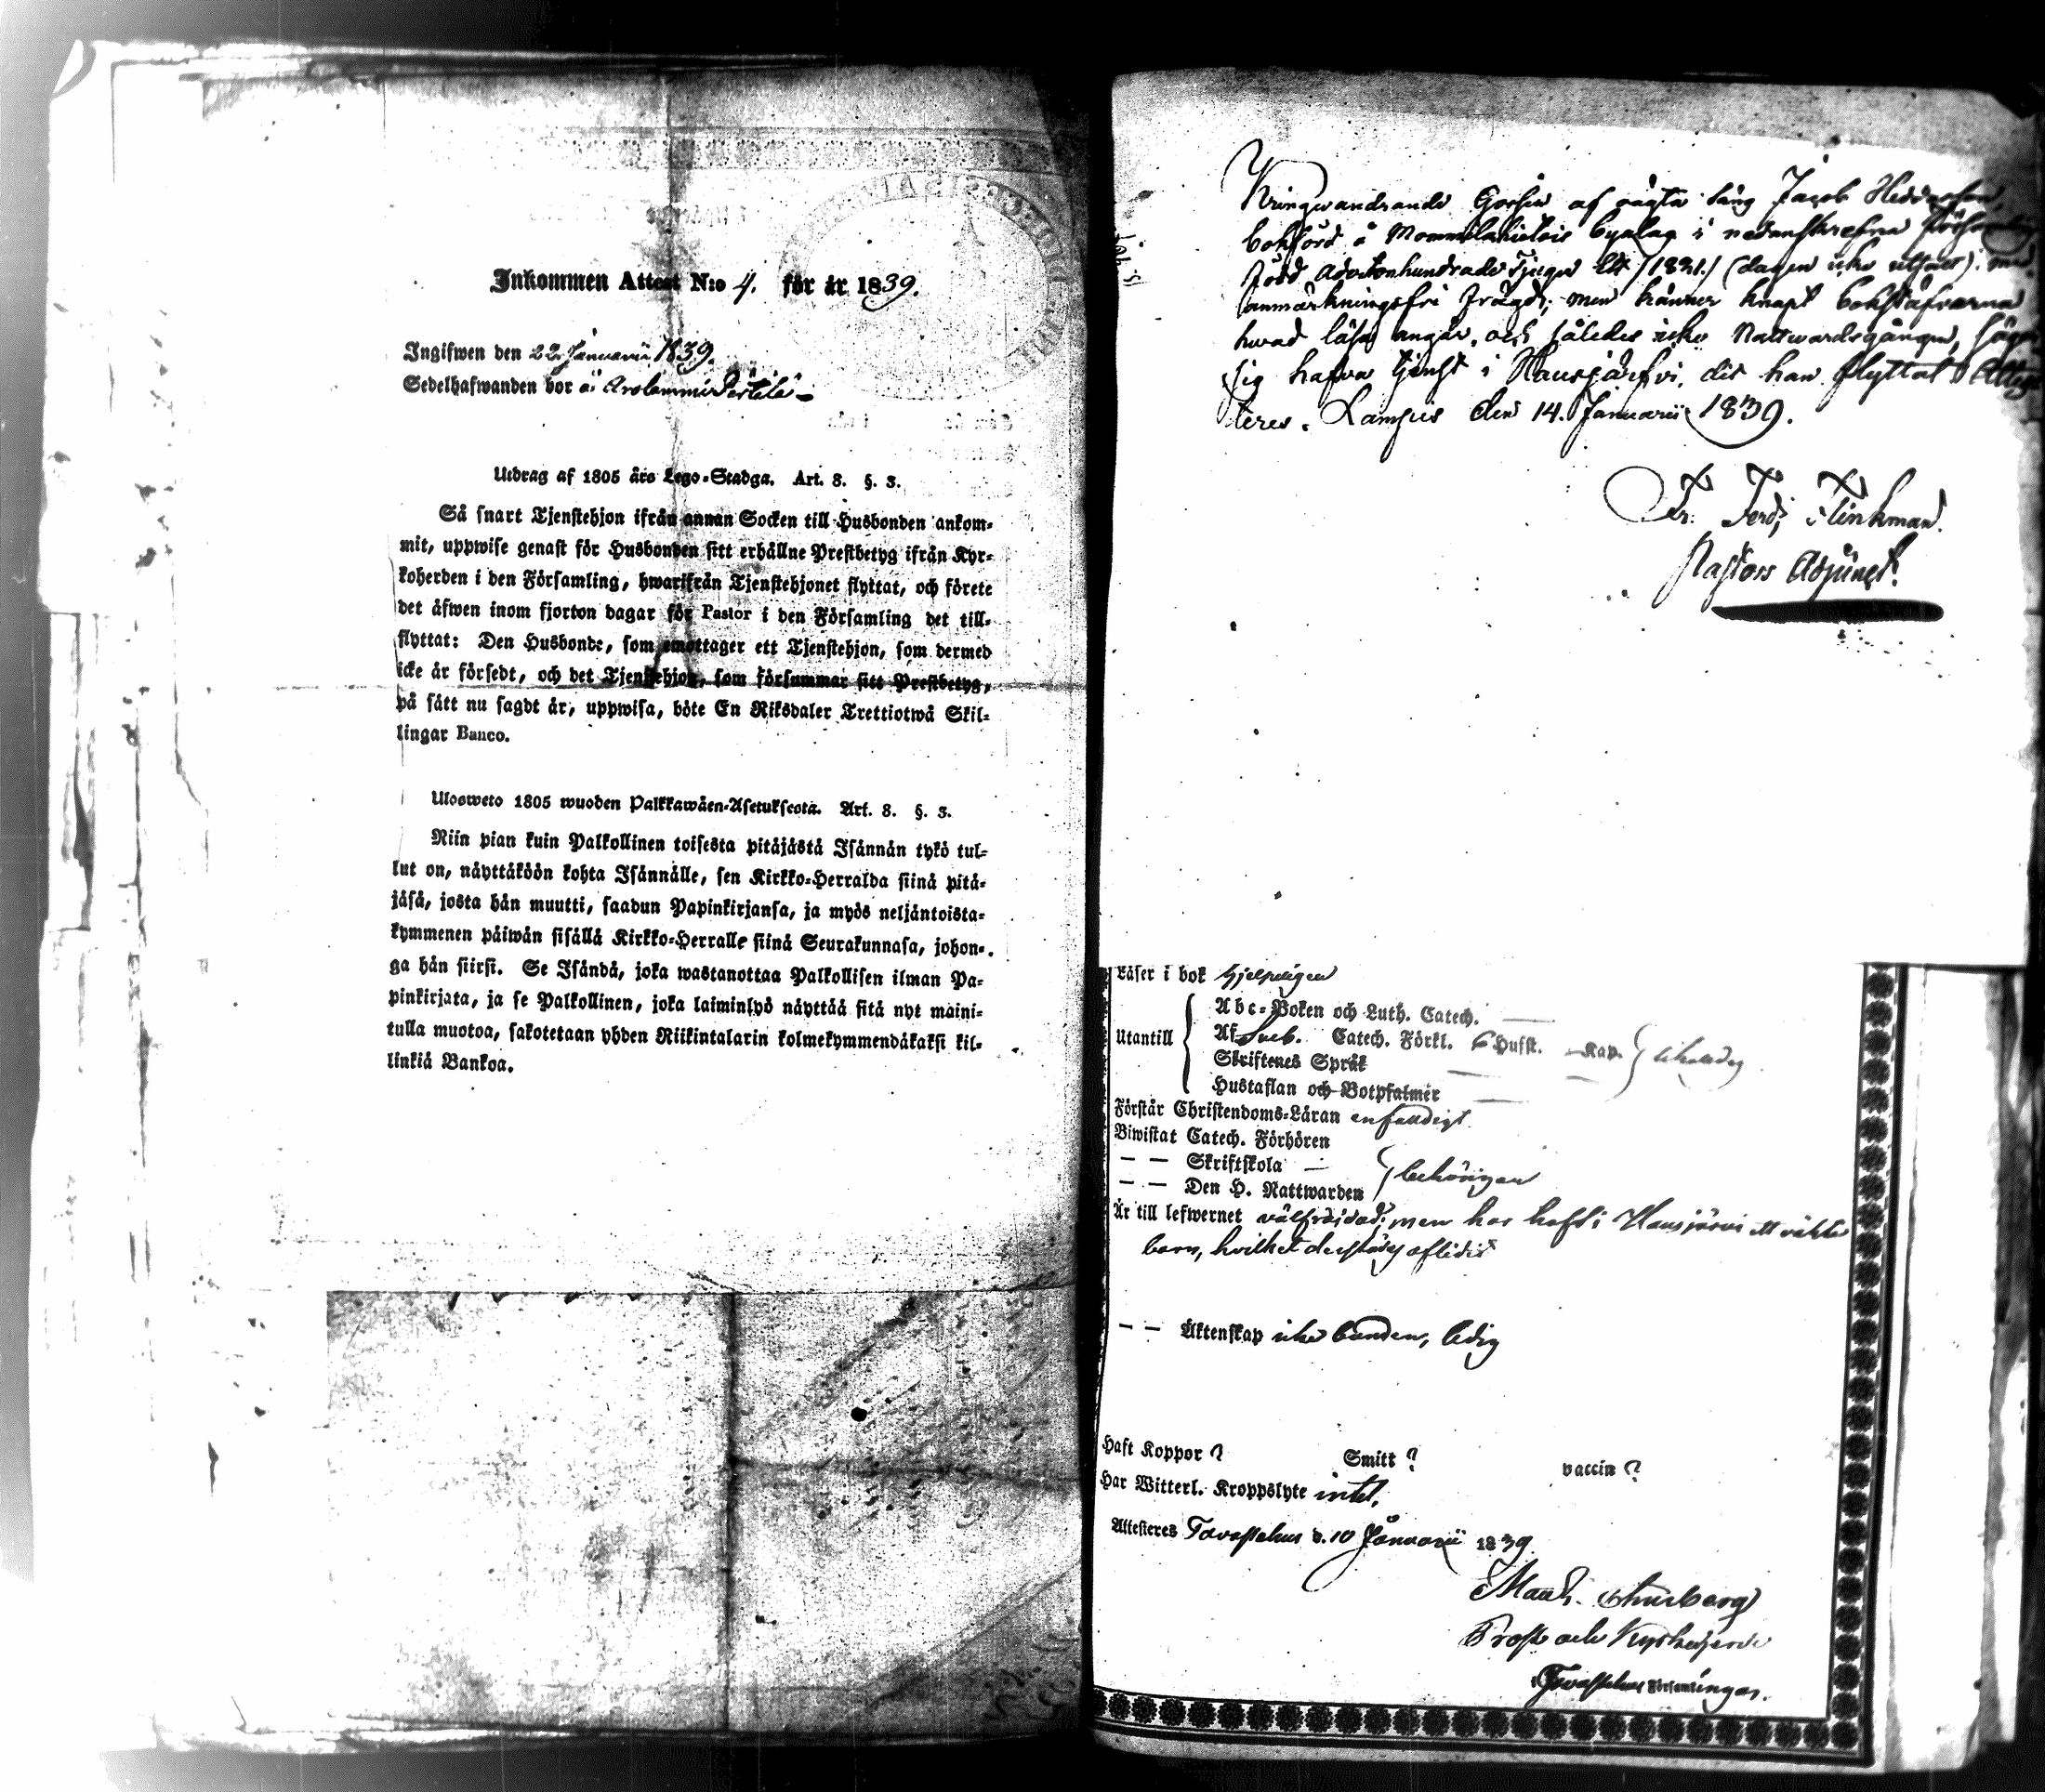 Inkommen Attest N:o 4. för år 1839.
Ingifwen den 22 Januarii 1839.
Sedelhafwanden bor å: Arolammi Pertilä
Utdrag af 1805 års Lego-Stadga. Art. 8. §. 3.
Så snart Tjenstehjon ifrån annan Socken till Husbonden ankom-
mit, uppwise genast för Husbonden sitt erhållne Prestbetyg ifrån Kyr-
koherden i den Församling, hwarifrån Tjenstehjonet flyttat, och förete
det äfwen inom fjorton dagar för Pastor i den Församling det till-
flyttat: Den Husbonde, som emottager ett Tjenstehjon, som dermed
icke är försedt, och det Tjenstehjon, som försummar sitt Prestbetyg,
på sätt nu sagdt är, uppwisa, böte En Riksdaler Trettiotwå Skil-
lingar Banco.
Ulosweto 1805 wuoden Palkkawäen-Asetuksesta. Art. 8. §. 3.
Niin pian kuin Palkollinen toisesta pitäjästä Isännän tykö tul-
lut on, näyttäköön kohta Isännälle, sen Kirkko-Herralda siinä pitä-
jäsä, josta hän muutti, saadun Papinkirjansa, ja myös neljäntoista-
kymmenen päiwän sisällä Kirkko-Herralle siinä Seurakunnasa, johon-
ga hän siirsi. Se Isändä, joka wastanottaa Palkollisen ilman Pa-
pinkirjata, ja se Palkollinen, joka laiminlyö näyttää sitä nyt maini-
tulla muotoa, sakotetaan yhden Riikintalarin kolmekymmendäkaksi kil-
linkiä Bankoa.
Kringwandrande Gossen af oägta säng Jacob
bokförd å byalag i nedanskrefne
född Adertonhundrade Tjugu Ett /1821./ (dagen icke utsatt).
anmärkningsfri frägd; men känner knapt bokstäfverna
hwad läsa angår, och således icke Nattwardsgången, säger
sig hafva tjenst i Hausjärfvi, dit han flyttat Attes-
teres. Lampis den 14. Januarii 1839.
Fr. Ferd. Flinkman.
Pastors Adjunct.
Läser i bok hjelpeligen
Utantill
Abc-Boken och Luth. Catech.
Af Sveb. Catech. Förkl. 6 Hufst. Kap.
Skriftenes Språk
Hustaflan och Botpsalmer
Förstår Christendoms-Läran enfaldigt
Biwistat Catech. Förhören
— — Skriftskola —
— — Den H. Nattwarden } behörigen
Är till lefwernet välfräjdad; men har haft i Hausjärvi ett oäkta
barn, hvilket derstädes aflidit
— — Äktenskap icke bunden, ledig
Haft Koppor ? Smitt ? vaccin ?
Har Witterl. Kroppslyte intet.
Attesteres Tavastehus d. 10 Januarii 1839
Prost och Kyrkoherde
i Tavastehus Församlingar.